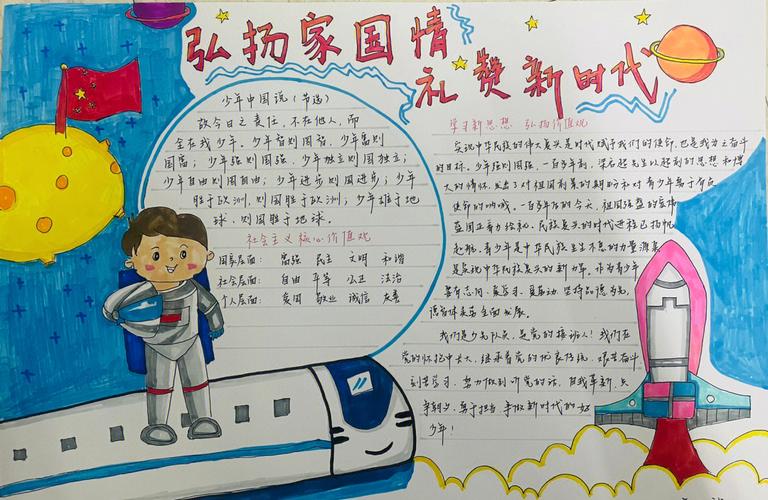 弘扬家国情
礼赞新时代
少年中国说（节选）
故今日之责任，不在他人，而
全在我少年。少年智则国智，少年富则
国富；少年强则国强，少年独立则国独立；
少年自由则国自由；少年进步则国进步；少年
胜于欧洲，则国胜于欧洲；少年雄于地
球，则国雄于地球。
社会主义核心价值观
国家层面：富强 民主 文明 和谐
社会层面：自由 平等 公正 法治
个人层面：爱国 敬业 诚信 友善
学习新思想 弘扬价值观
实现中华民族的伟大复兴是时代赋予我们的使命，也是我为之奋斗
的目标。少年强则国强，一百多年前，梁启超先生以超前的思想和博
大的情怀，发出了对祖国前景的期盼和对青少年勇于肩负
使命的呐喊。一百多年后的今天，祖国强盛的宏伟
蓝图正着力绘就，民族复兴的时代进程已扬帆
起航，青少年是中华民族生生不息的力量源泉
是实现中华民族复兴的新力军。作为青少年
要有志向、爱学习、员劳动、坚持品德为先，
德智体美劳全面发展。
我们是少先队员，是党的接班人！我们在
党的怀抱中长大，继承着党的优良传统，艰苦奋斗
刻苦学习，努力做到听党的话，自我革新，只
争朝夕，勇于担当，争做新时代的好
少年！